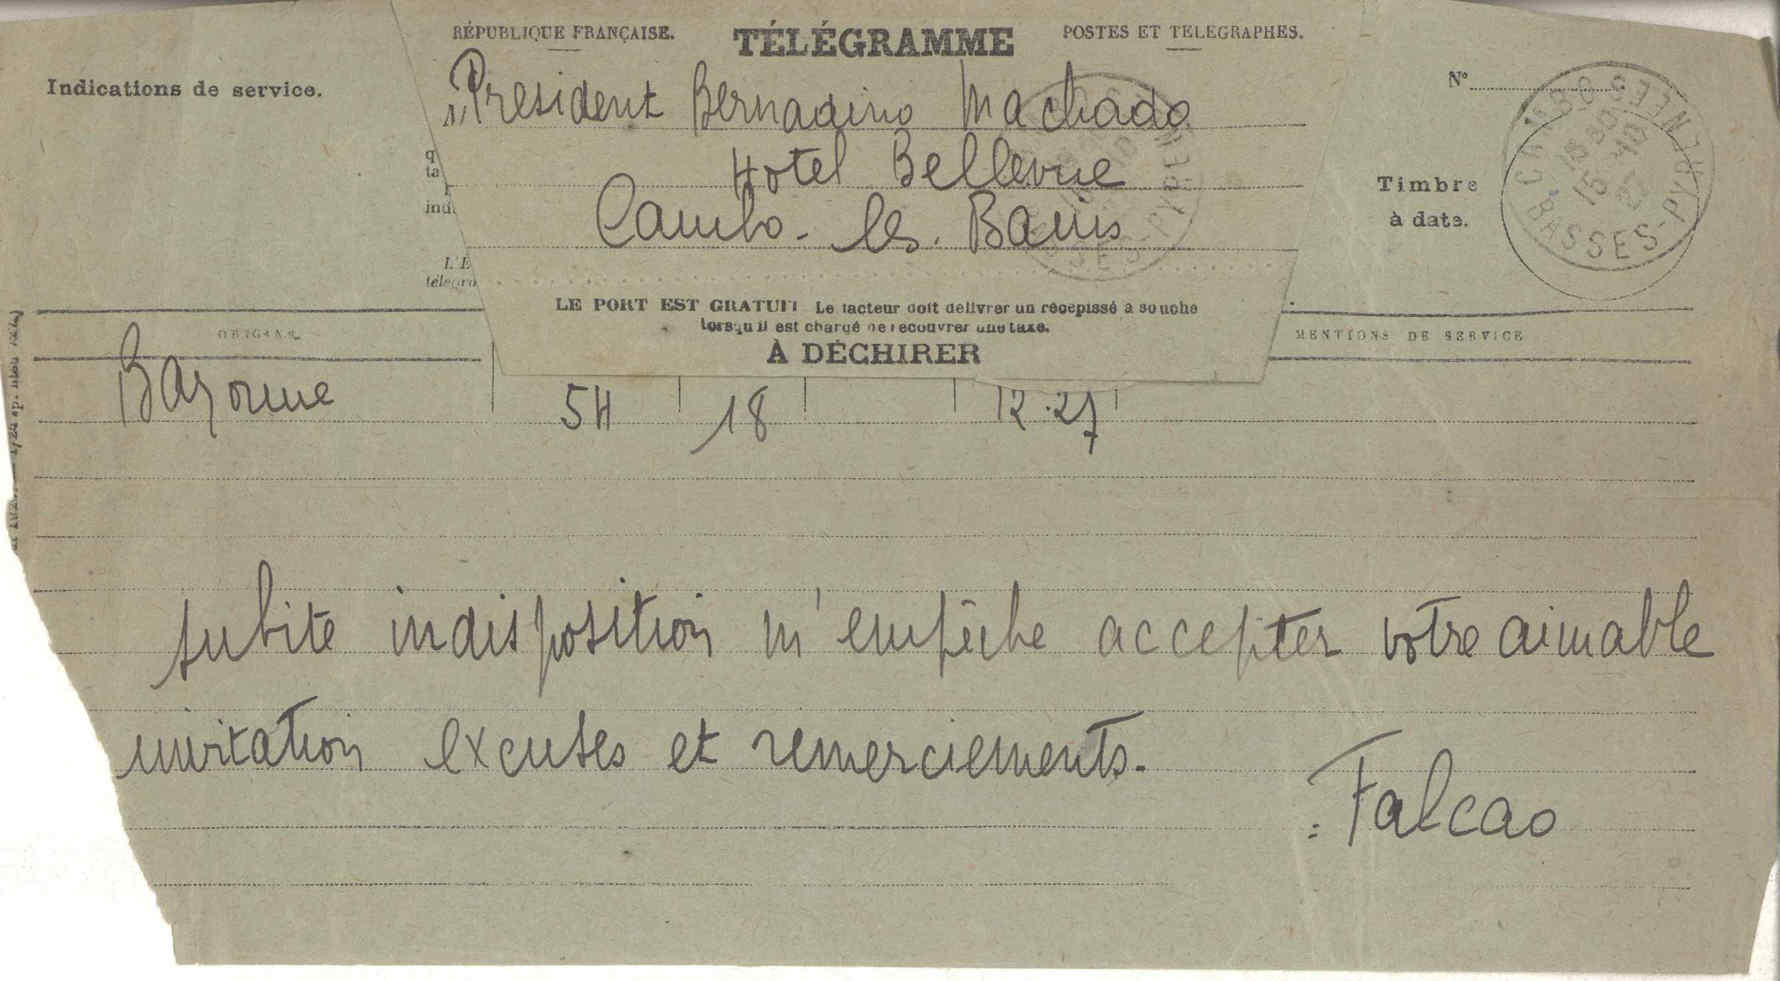 RÉPUBLIQUE FRANÇAISE. TÉLÉGRAMME POSTES ET TELEGRAPHES.
Indications de service.
N°
President Bernadino Machado
Hotel Bellevue
Cambo-les-Bains
Timbre
à date.
CAMBO LES BAINS
15 10
BASSES-PYRÉNÉES
q
ta
ind.
L'E
télégra
LE PORT EST GRATUIT Le facteur doit délivrer un récépissé à souche
lorsqu'il est chargé de recouvrer une taxe.
À DÉCHIRER
ORIGINE MENTIONS DE SERVICE
Bayonne 54 18 12.27
subite indisposition m'empêche accepter votre aimable
invitation excuses et remerciements.
: Falcao